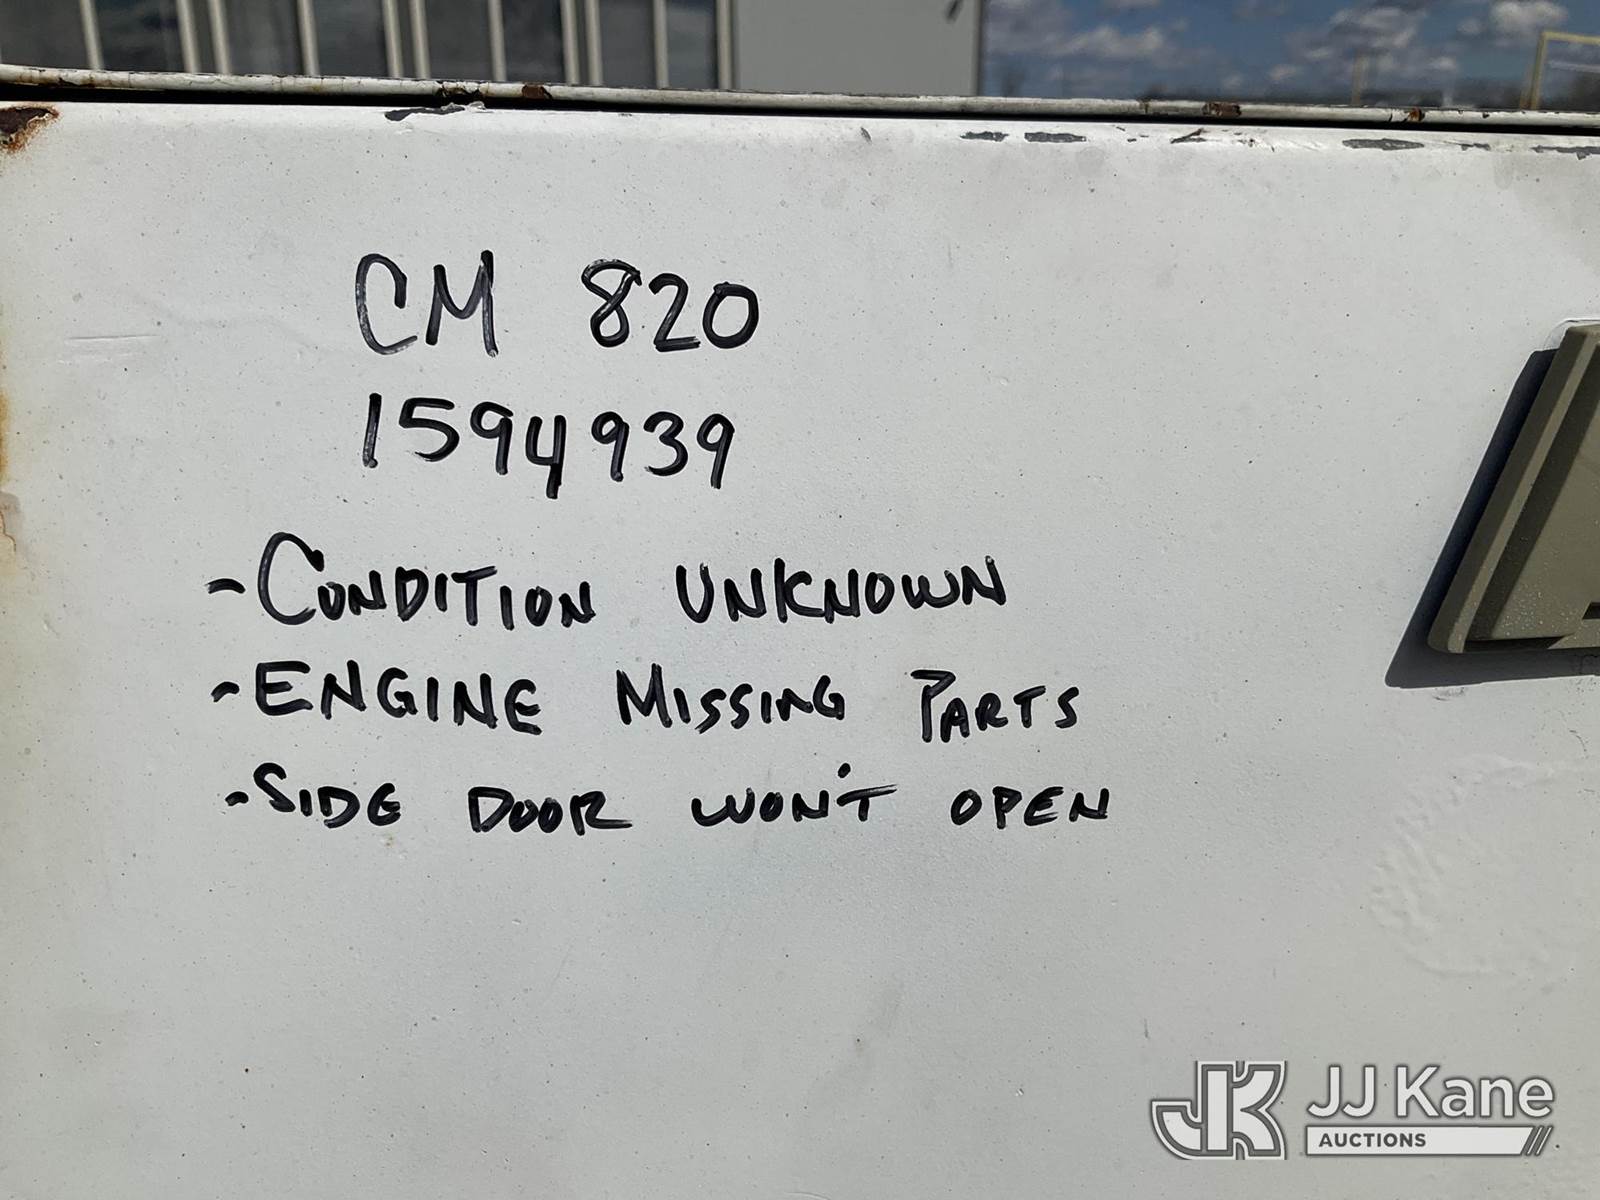 CM 820
1594939
- CONDITION UNKNOWN
- ENGINE MISSING PARTS
- SIDE DOOR WON'T OPEN
JK JJ Kane
AUCTIONS